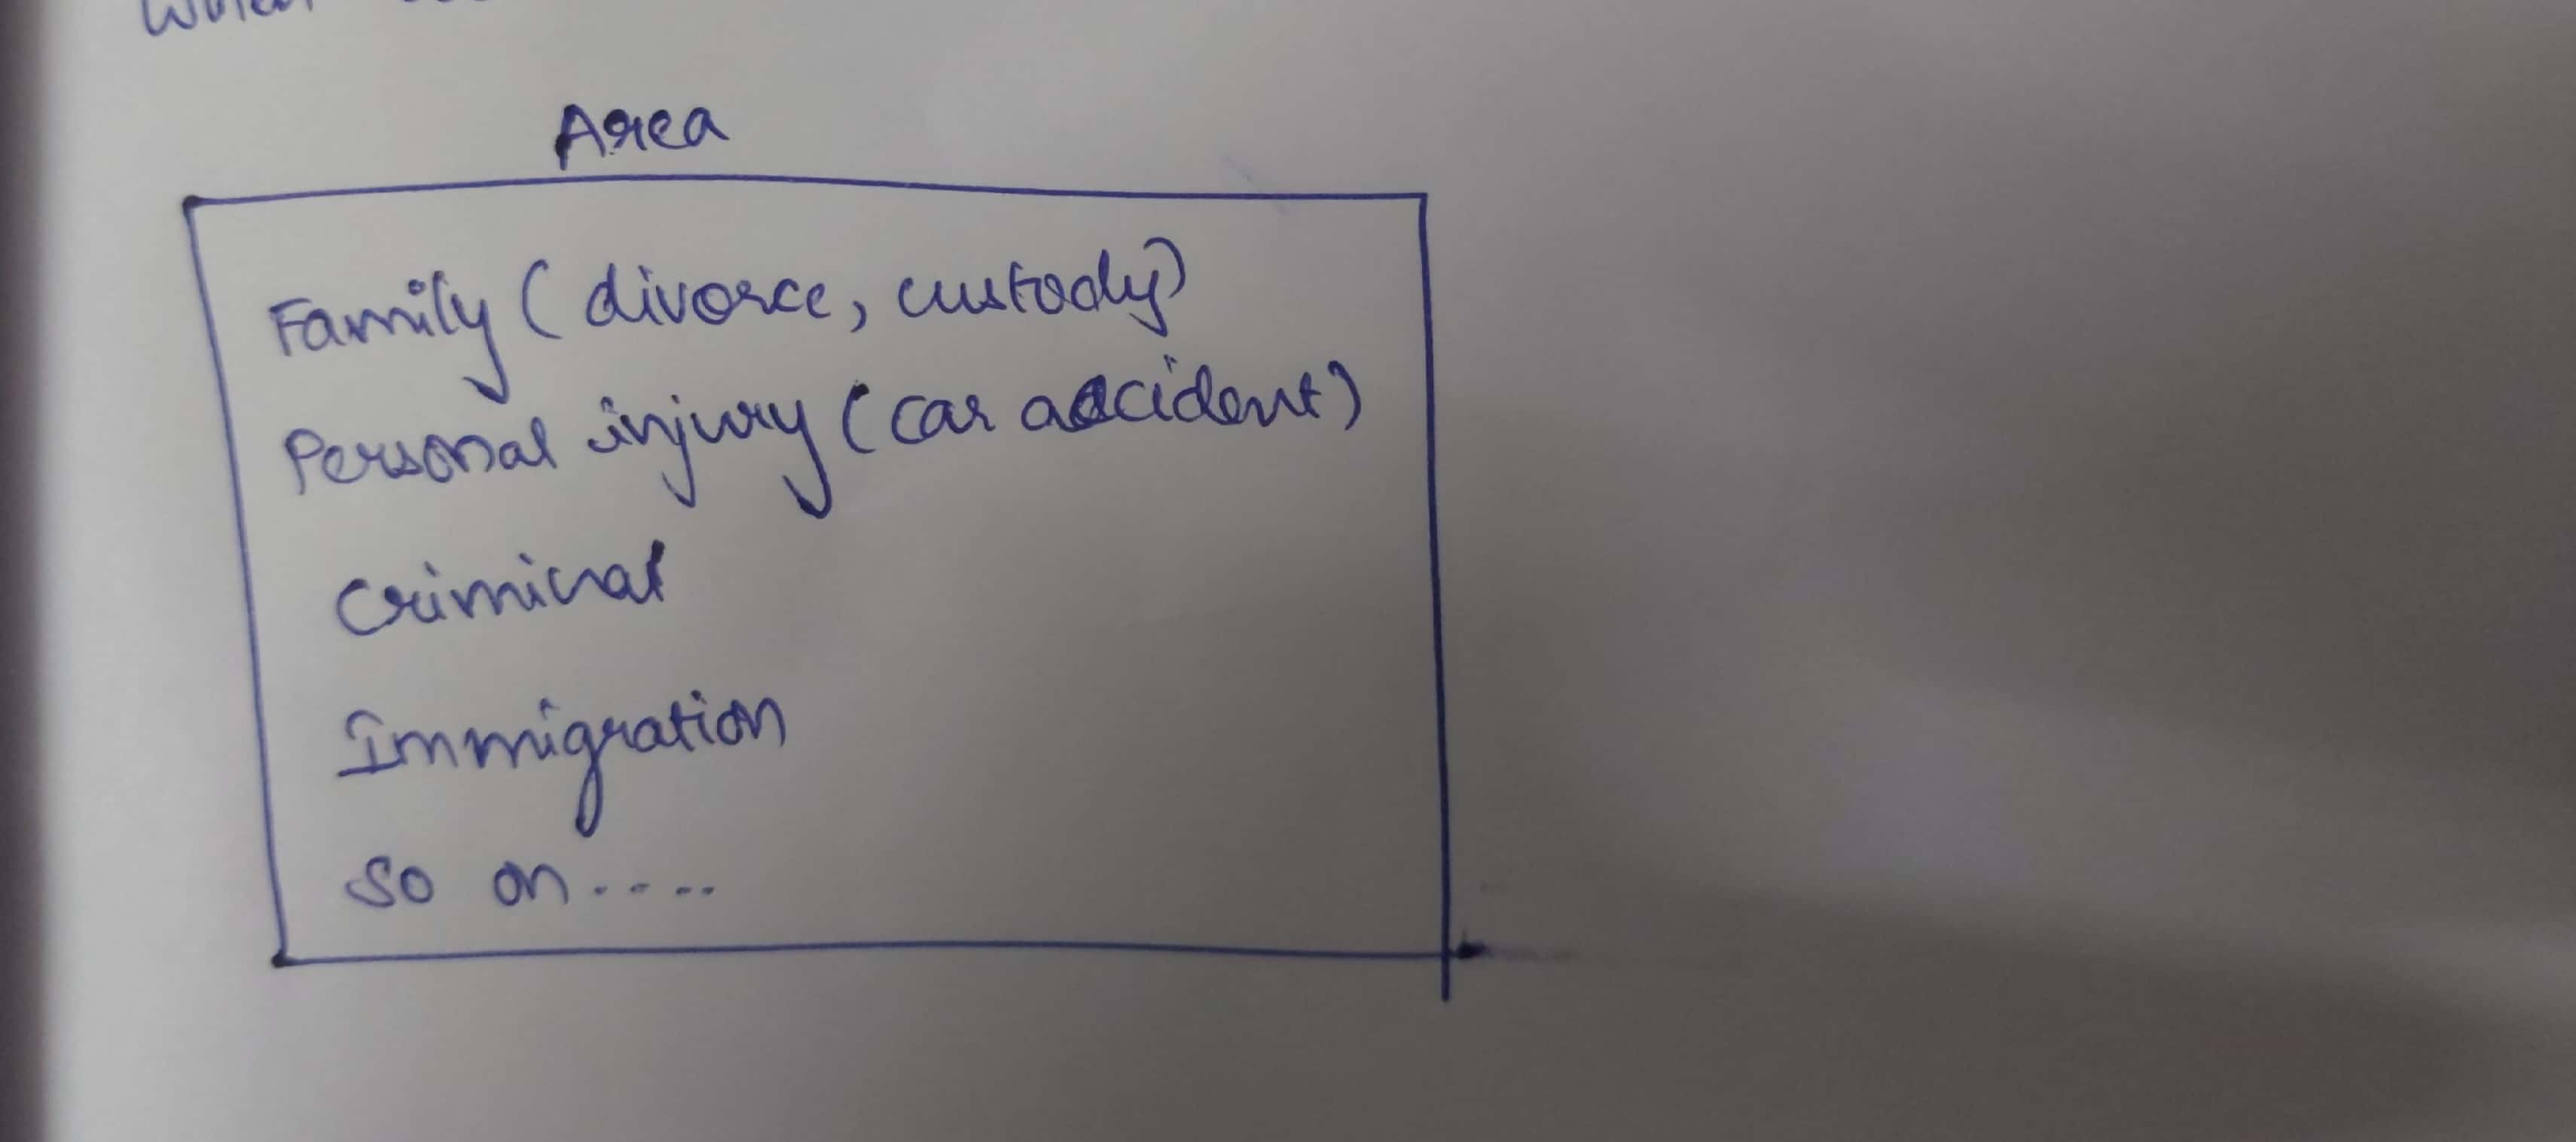 Area
Family ( divorce, custody)
Personal injury ( car accident)
Criminal
Immigration
so on.....